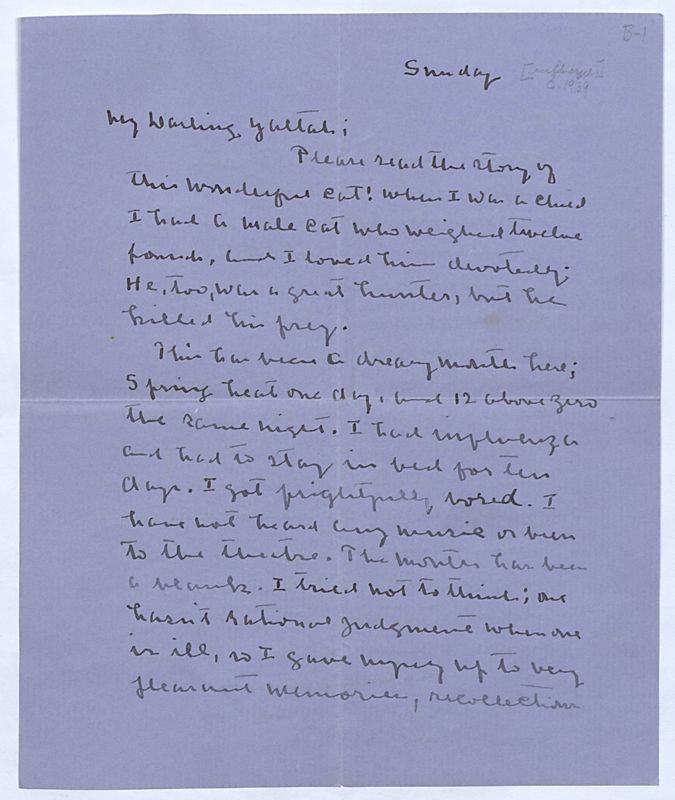 B-1
Sunday
c. 1939
My Darling Yaltah;
Please read the story of
this wonderful cat! When I was a child
I had a male cat who weighed twelve
pounds, and I loved him devotedly;
He, too, was a great hunter, but he
killed his prey.
This has been a dreary month here;
Spring heat one day, and 12 above zero
the same night. I had influenza
and had to stay in bed for ten
days. I got frightfully bored. I
have not heard any music or been
to the theatre. The month has been
a blank. I tried not to think; one
hasn't rational judgment when one
is ill, so I gave myself up to very
pleasant memories, recollections